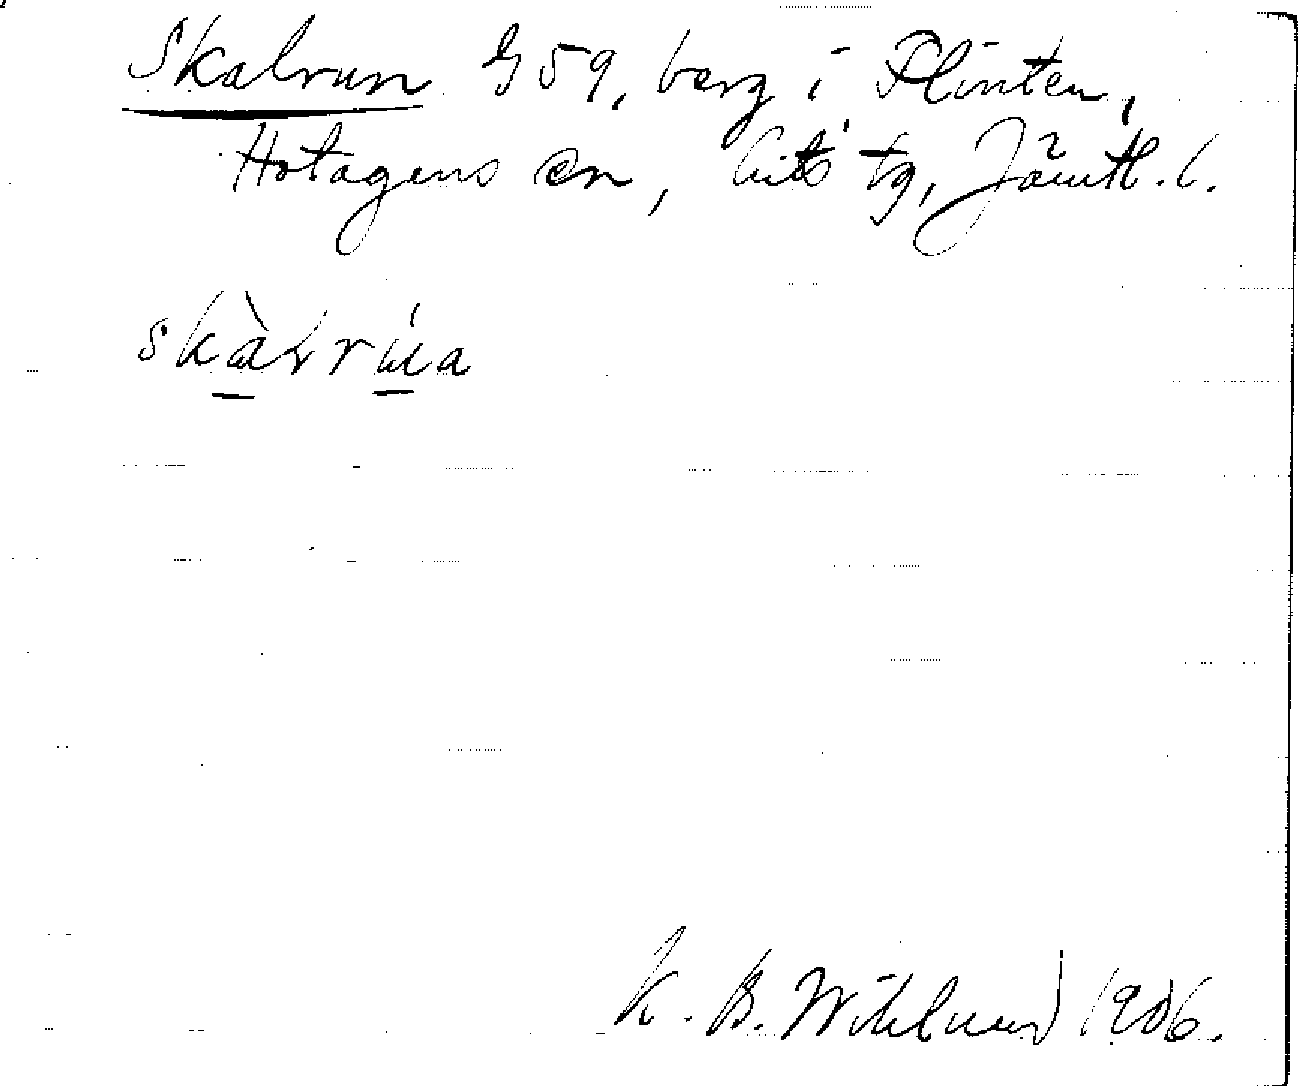 Skalrun G 59, berg i Flinten,
Hotagens sn, Lits tg, Jämtl. l.
skàlrúa
K. B. Wiklund 1906.